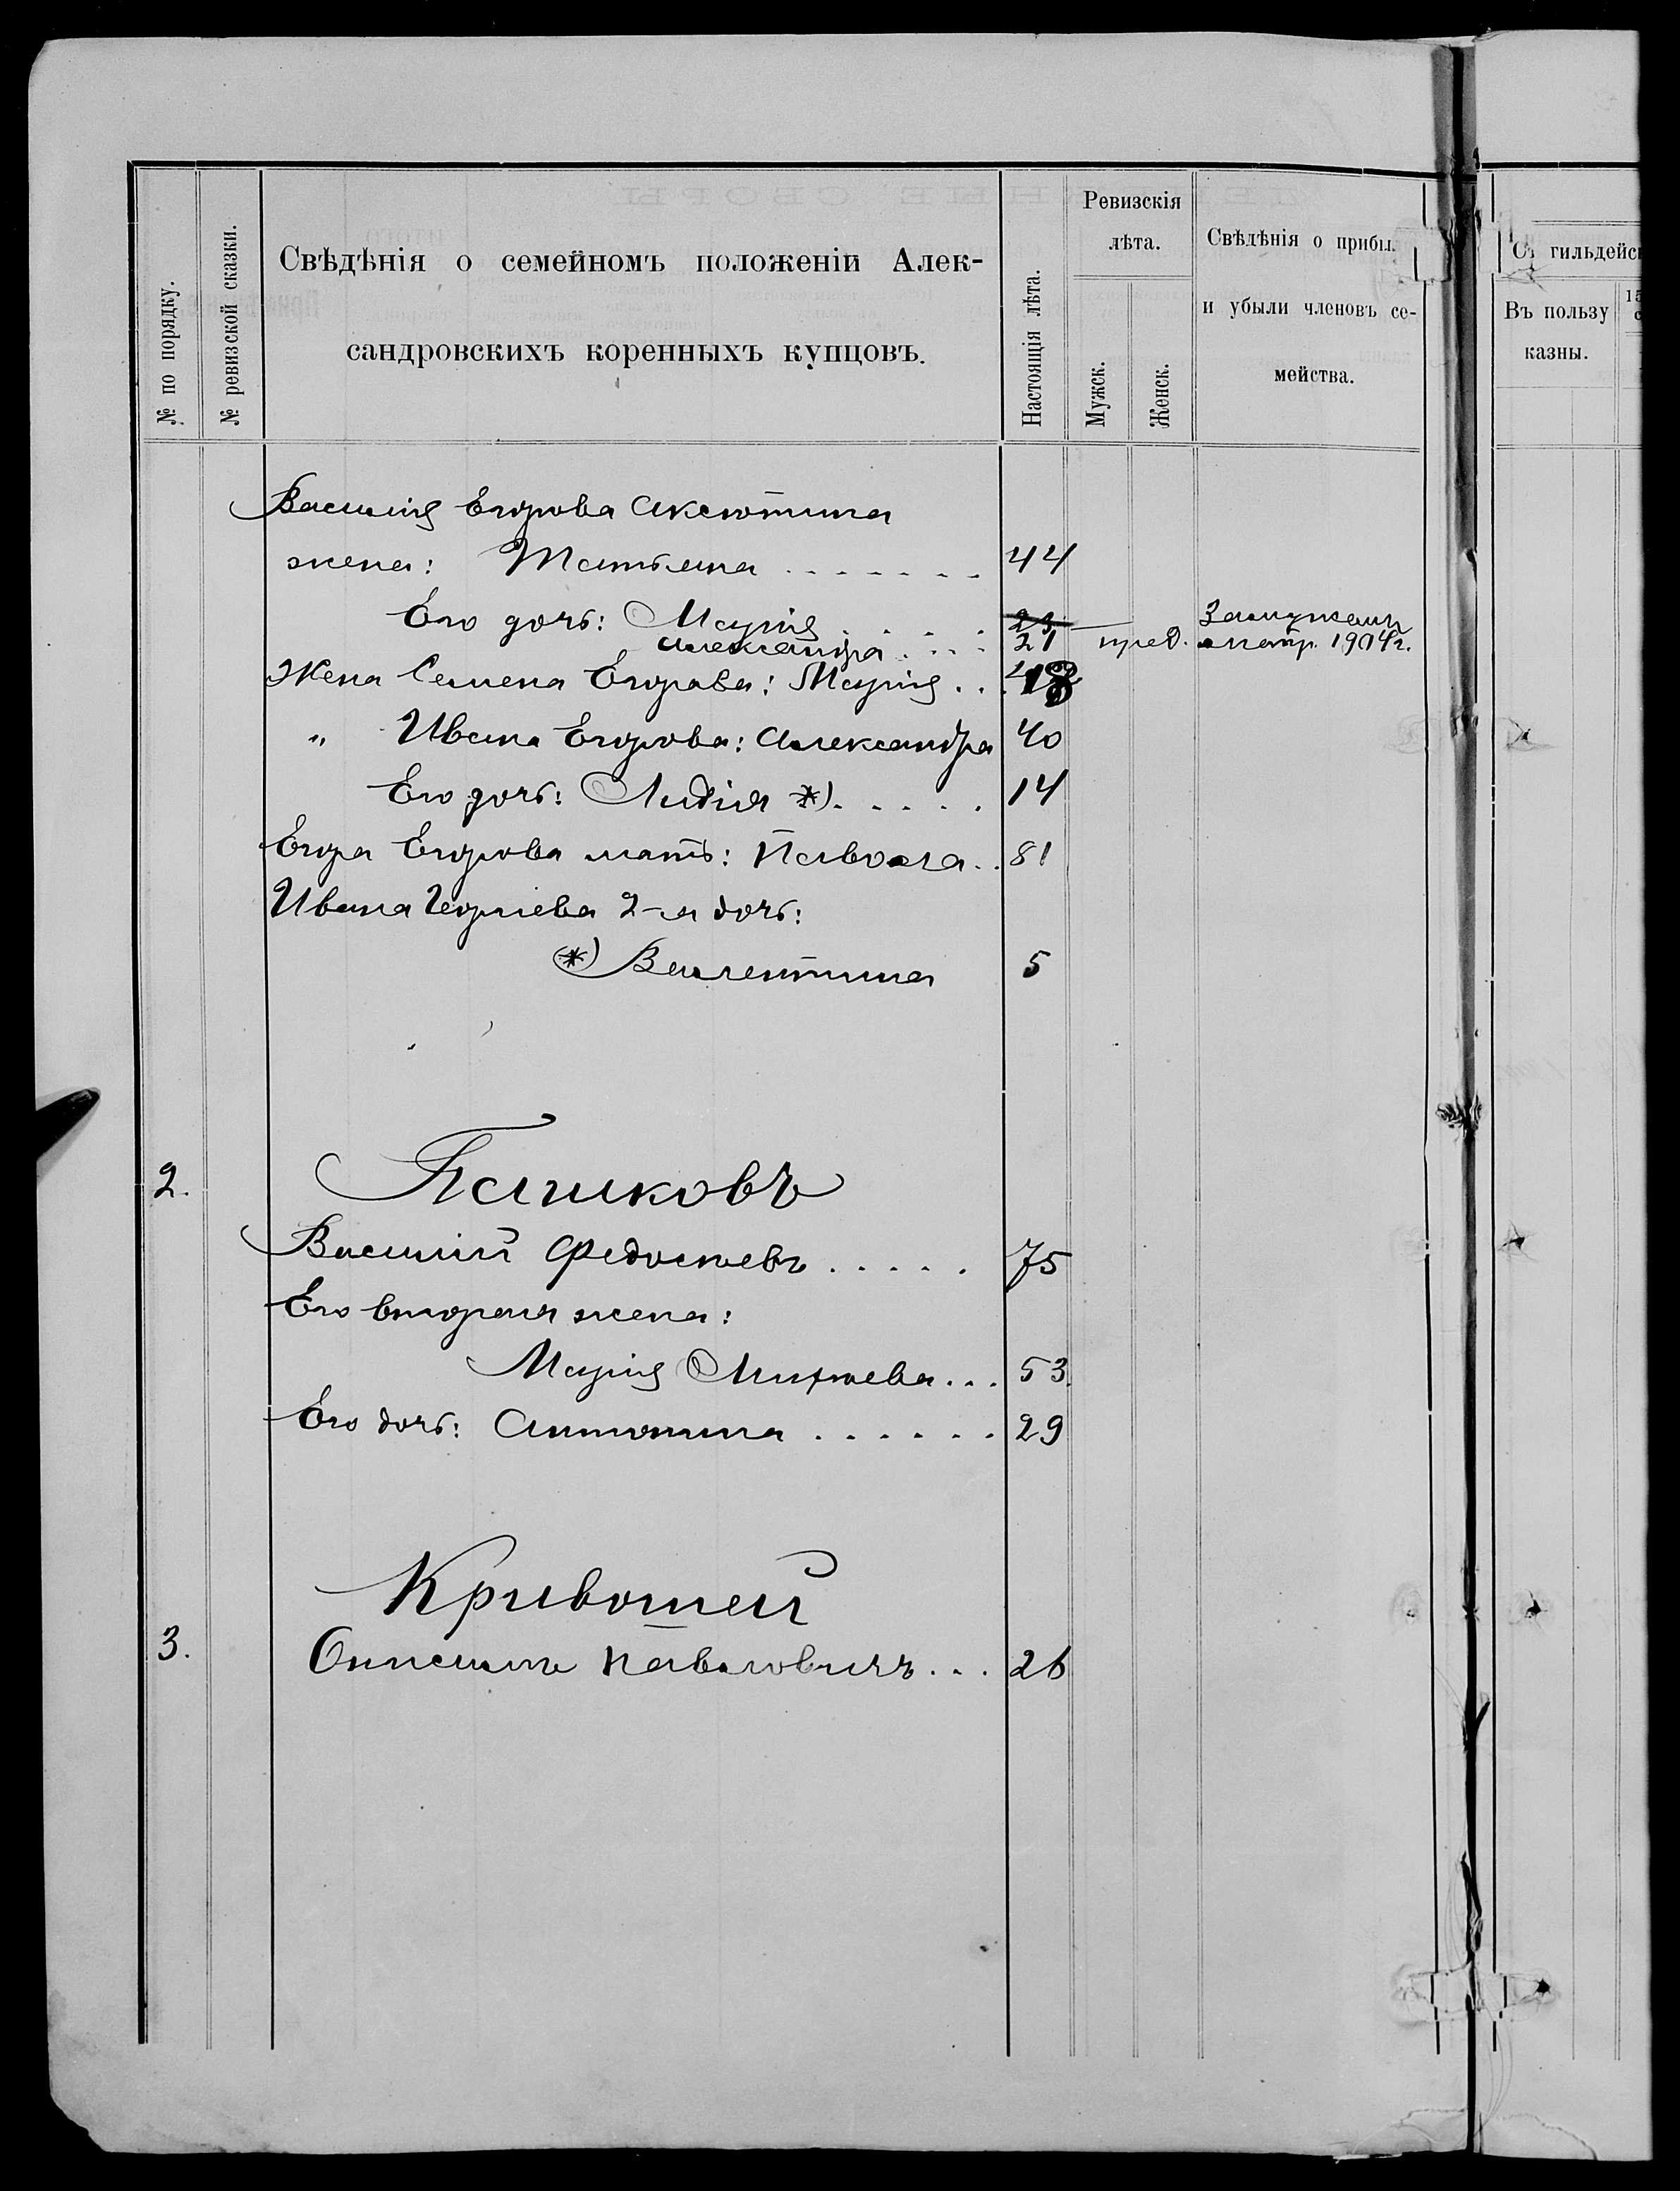 № по порядку.
№ ревизской сказки.
Свѣдѣнія о семейномъ положеніи Алек-
сандровскихъ коренныхъ купцовъ.
Настоящія лѣта.
Ревизскія
лѣта.
Мужск.
Женск.
Свѣдѣнія о прибы.
и убыли членовъ се-
мейства.
гильдейск
Въ пользу
казны.
15
Василія Егорова Аксютина
жена: Татьяна . . . . . . . 44
Его дочь: Марія . . . . 23 Замужемъ
Александра . . . . 21 пред. метр. 1904 г.
Жена Семена Егорова: Марія . . 
" Ивана Егорова: Александра 40
Его дочь: Лидія *) . . . . . 14
Егора Егорова мать: Павола . . 81
Ивана Георгіева 2-я дочь:
*) Валентина 5
2. Пашковъ
Василій Федосѣевъ . . . . . 75
Его вторая жена:
Марія Михѣева . . . 53.
Его дочь: Антонина . . . . . . 29
Кривошей
3. Онисимъ Павловичъ . . . 26